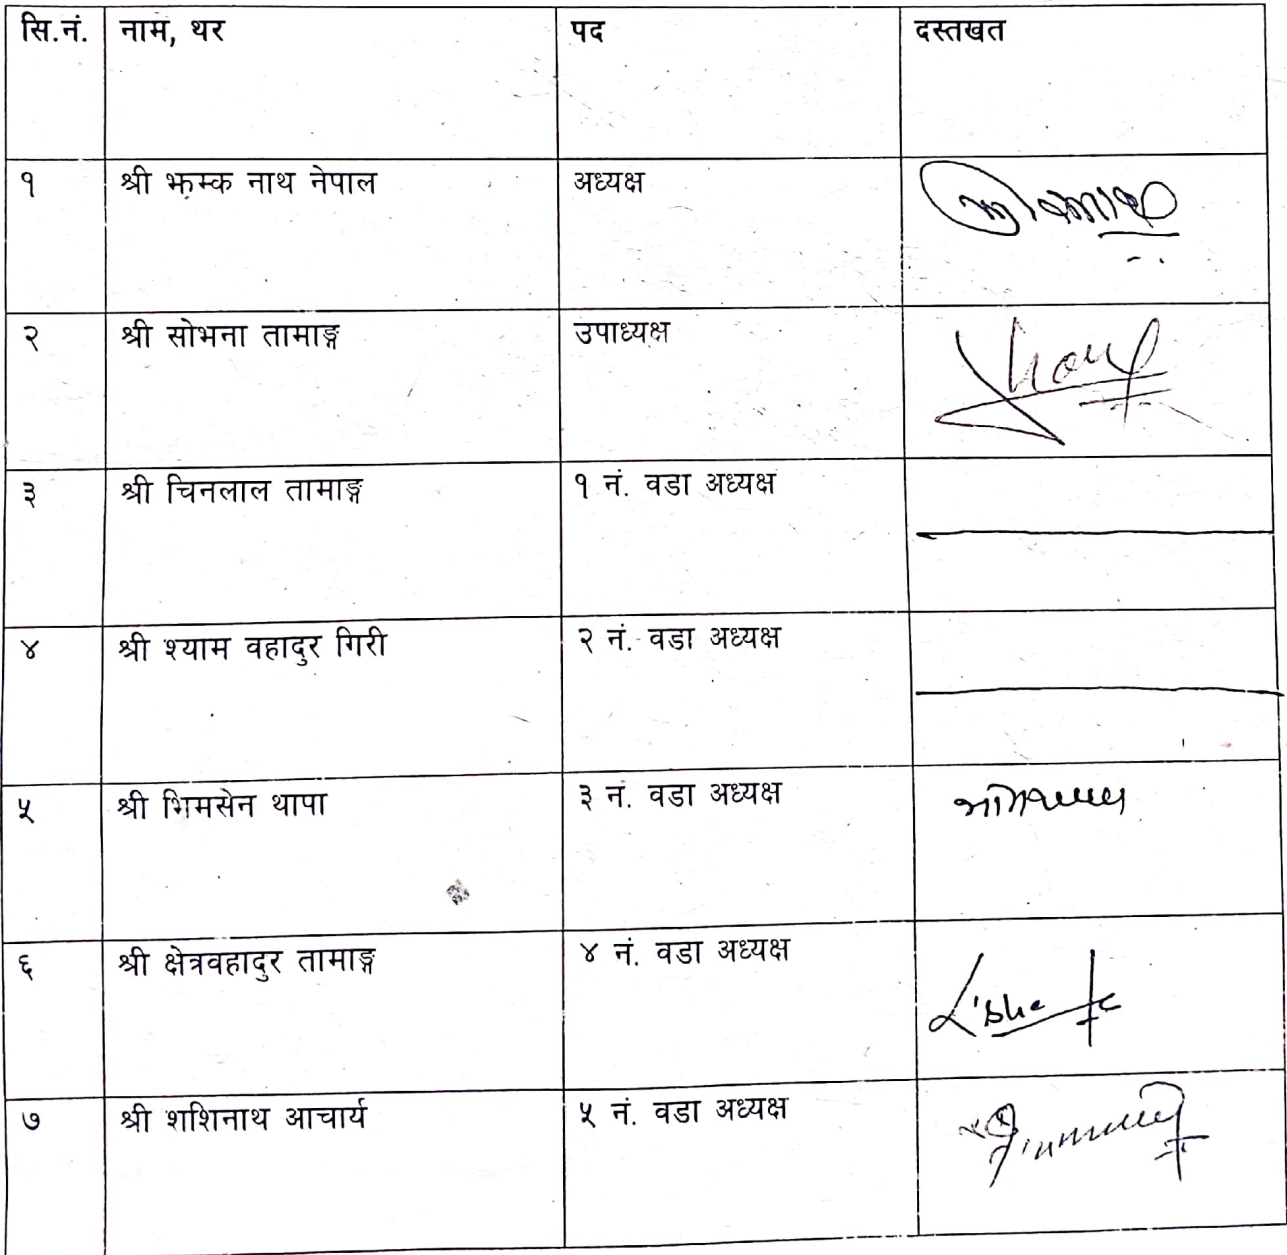 सि.नं. नाम, थर पद दस्तखत
१ श्री झम्क नाथ नेपाल अध्यक्ष
२ श्री सोभना तामाङ्ग उपाध्यक्ष
३ श्री चिनलाल तामाङ्ग १ नं. वडा अध्यक्ष
४ श्री श्याम वहादुर गिरी २ नं. वडा अध्यक्ष
५ श्री भिमसेन थापा ३ नं. वडा अध्यक्ष
६ श्री क्षेत्रवहादुर तामाङ्ग ४ नं. वडा अध्यक्ष
७ श्री शशिनाथ आचार्य ५ नं. वडा अध्यक्ष